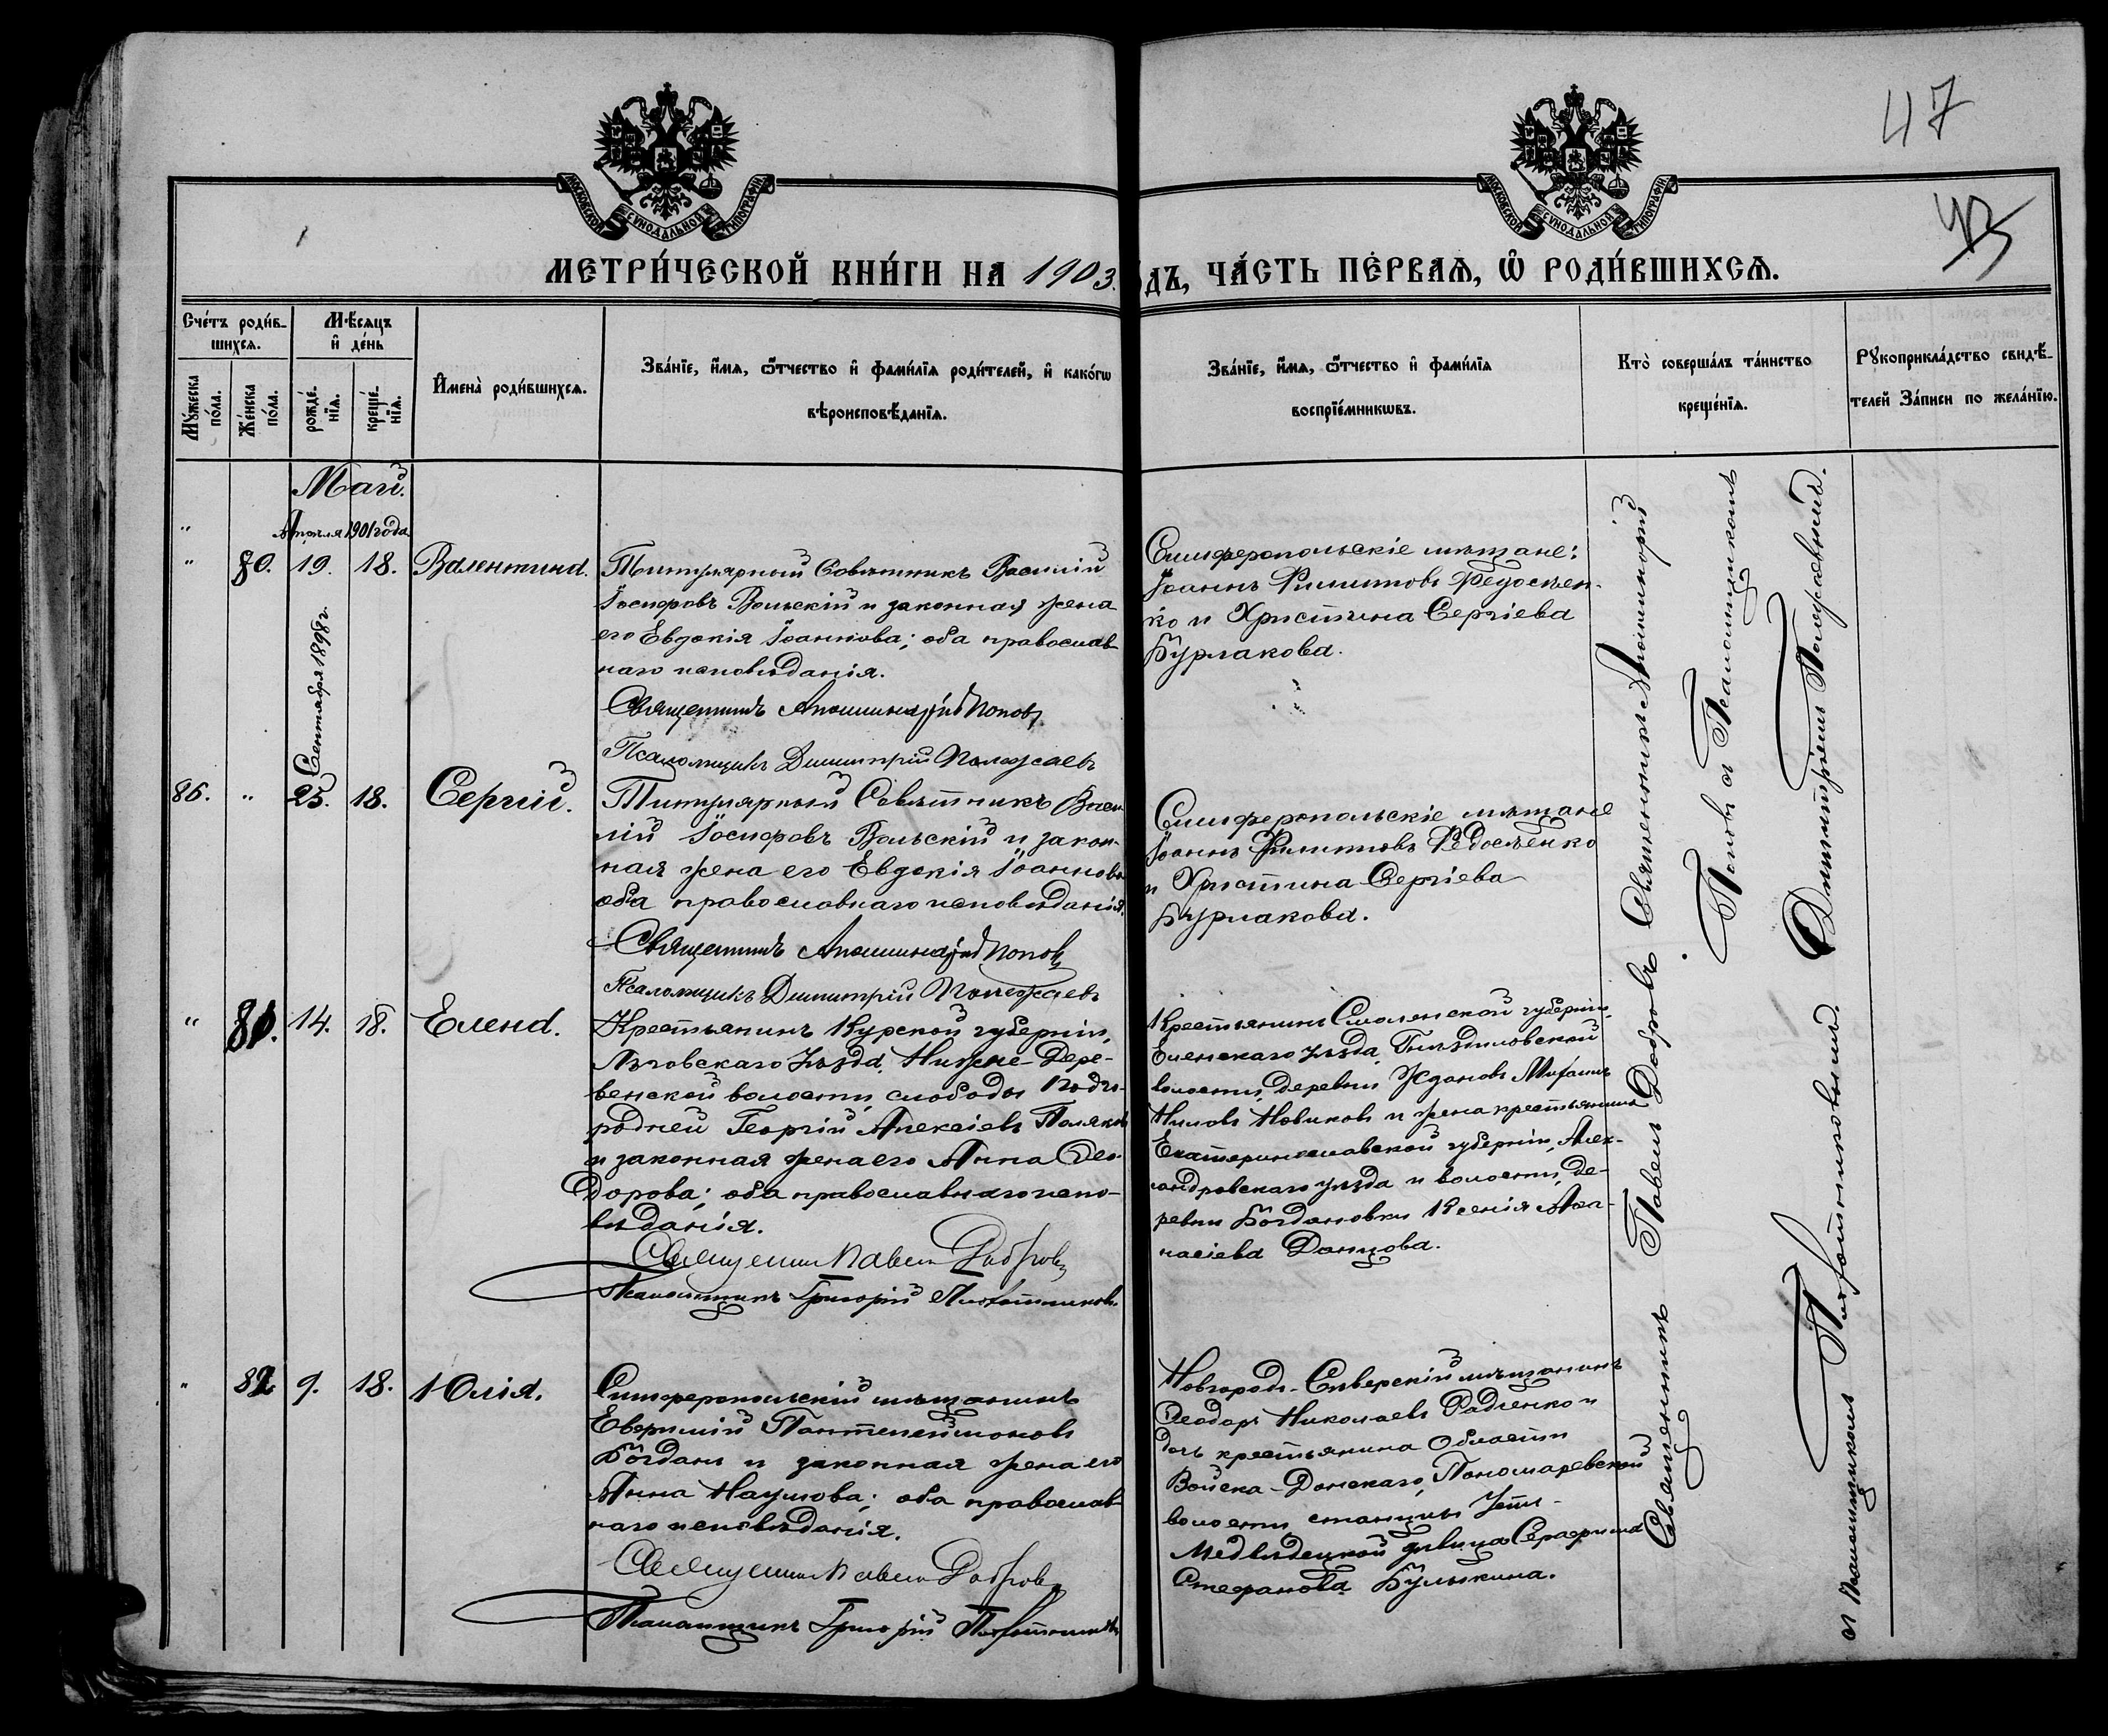 47
43
МОСКОВСКОЙ СѴНОДАЛЬНОЙ ТИПОГРАФІИ
МОСКОВСКОЙ СѴНОДАЛЬНОЙ ТИПОГРАФІИ
МЕТРИ́ЧЕСКОЙ КНИ́ГИ НА 1903 ОДЪ, ЧА́СТЬ ПЕ́РВАЯ, Ѿ РОДИ́ВШИХСЯ.
Сче́тъ роди́в-
шихся.
Мѣ́сяцъ
и҆ де́нь
Мꙋ́жеска
по́ла.
Же́нска
по́ла.
рожде́-
нїя.
креще́-
нїя.
И҆мена̀ роди́вшихся.
Зва́нїе, и҆́мя, ѻ҆́тчество и҆ фами́лїя роди́телей, и҆ како́гѡ
вѣроисповѣ́данїя.
Зва́нїе, и҆́мя, ѻ҆́тчество и҆ фами́лїя
воспрїе́мникѡвъ.
Кто̀ соверша́лъ та́инство
креще́нїя.
Рꙋкоприкла́дство свидѣ́-
телей За́писи по жела́нїю.
Май.
Апрѣля 1901 года
" 80. 19. 18. Валентина.
Титулярный Совѣтникъ Василій
Іосифовъ Вольскій и законная жена
его Евдокія Іоаннова; оба православ-
наго исповѣданія.
Священникъ Аполлинарій Поповъ
Псаломщикъ Димитрій Полежаевъ
Симферопольскіе мѣщане:
Іоаннъ Филипповъ Федосѣен-
ко и Христина Сергіева
Бурлакова.
Сентября 1898 г.
86. " 25. 18. Сергій.
Титулярный Совѣтникъ Васи-
лій Іосифовъ Вольскій и закон-
ная жена его Евдокія Іоаннова
оба православнаго исповѣданія.
Священникъ Аполлинарій Поповъ
Псаломщикъ Димитрій Полежаевъ
Симферопольскіе мѣщане
Іоаннъ Филипповъ Федосѣенко
и Христина Сергіева
Бурлакова.
" 81. 14. 18. Елена.
Крестьянинъ Курской губерніи,
Льговскаго уѣзда, Нижне-Дере-
венской волости, слободы Подго-
родней Георгій Алексіевъ Поляковъ
и законная жена его Анна Ѳео-
дорова; оба православнаго испо-
вѣданія.
Священникъ Павелъ Добровъ
Псаломщикъ Григорій Плотниковъ
Крестьянинъ Смоленской губерніи,
Еленскаго уѣзда, Гнѣздиловской
волости, деревни Жданова Михаилъ
Ниловъ Новиковъ и жена крестьянина
Екатеринославской губерніи, Алек-
сандровскаго уѣзда и волости, де-
ревни Богдановки Ксенія Аѳа-
насіева Донцова.
" 82 9. 18. Юлія.
Симферопольскій мѣщанинъ
Евфимій Пантелеймоновъ
Богданъ и законная жена его
Анна Наумова; оба православ-
наго исповѣданія.
Священникъ Павелъ Добровъ
Псаломщикъ Григорій Плотниковъ
Новгородъ-Сѣверскій мѣщанинъ
Ѳеодоръ Николаевъ Радченко и
дочь крестьянина Области
Войска-Донскаго, Пономаревской
волости станицы Усть-
Медвѣдецкой дѣвица Серафима
Стефанова Булыкина.
Священникъ Аполлинарій
Поповъ съ Псаломщикомъ
Димитріемъ Полежаевымъ.
Священникъ Павелъ Добровъ
съ Псаломщикомъ Плотниковымъ.